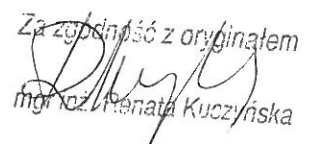 Za zgodność z oryginałem
mgr inż. Renata Kuczyńska